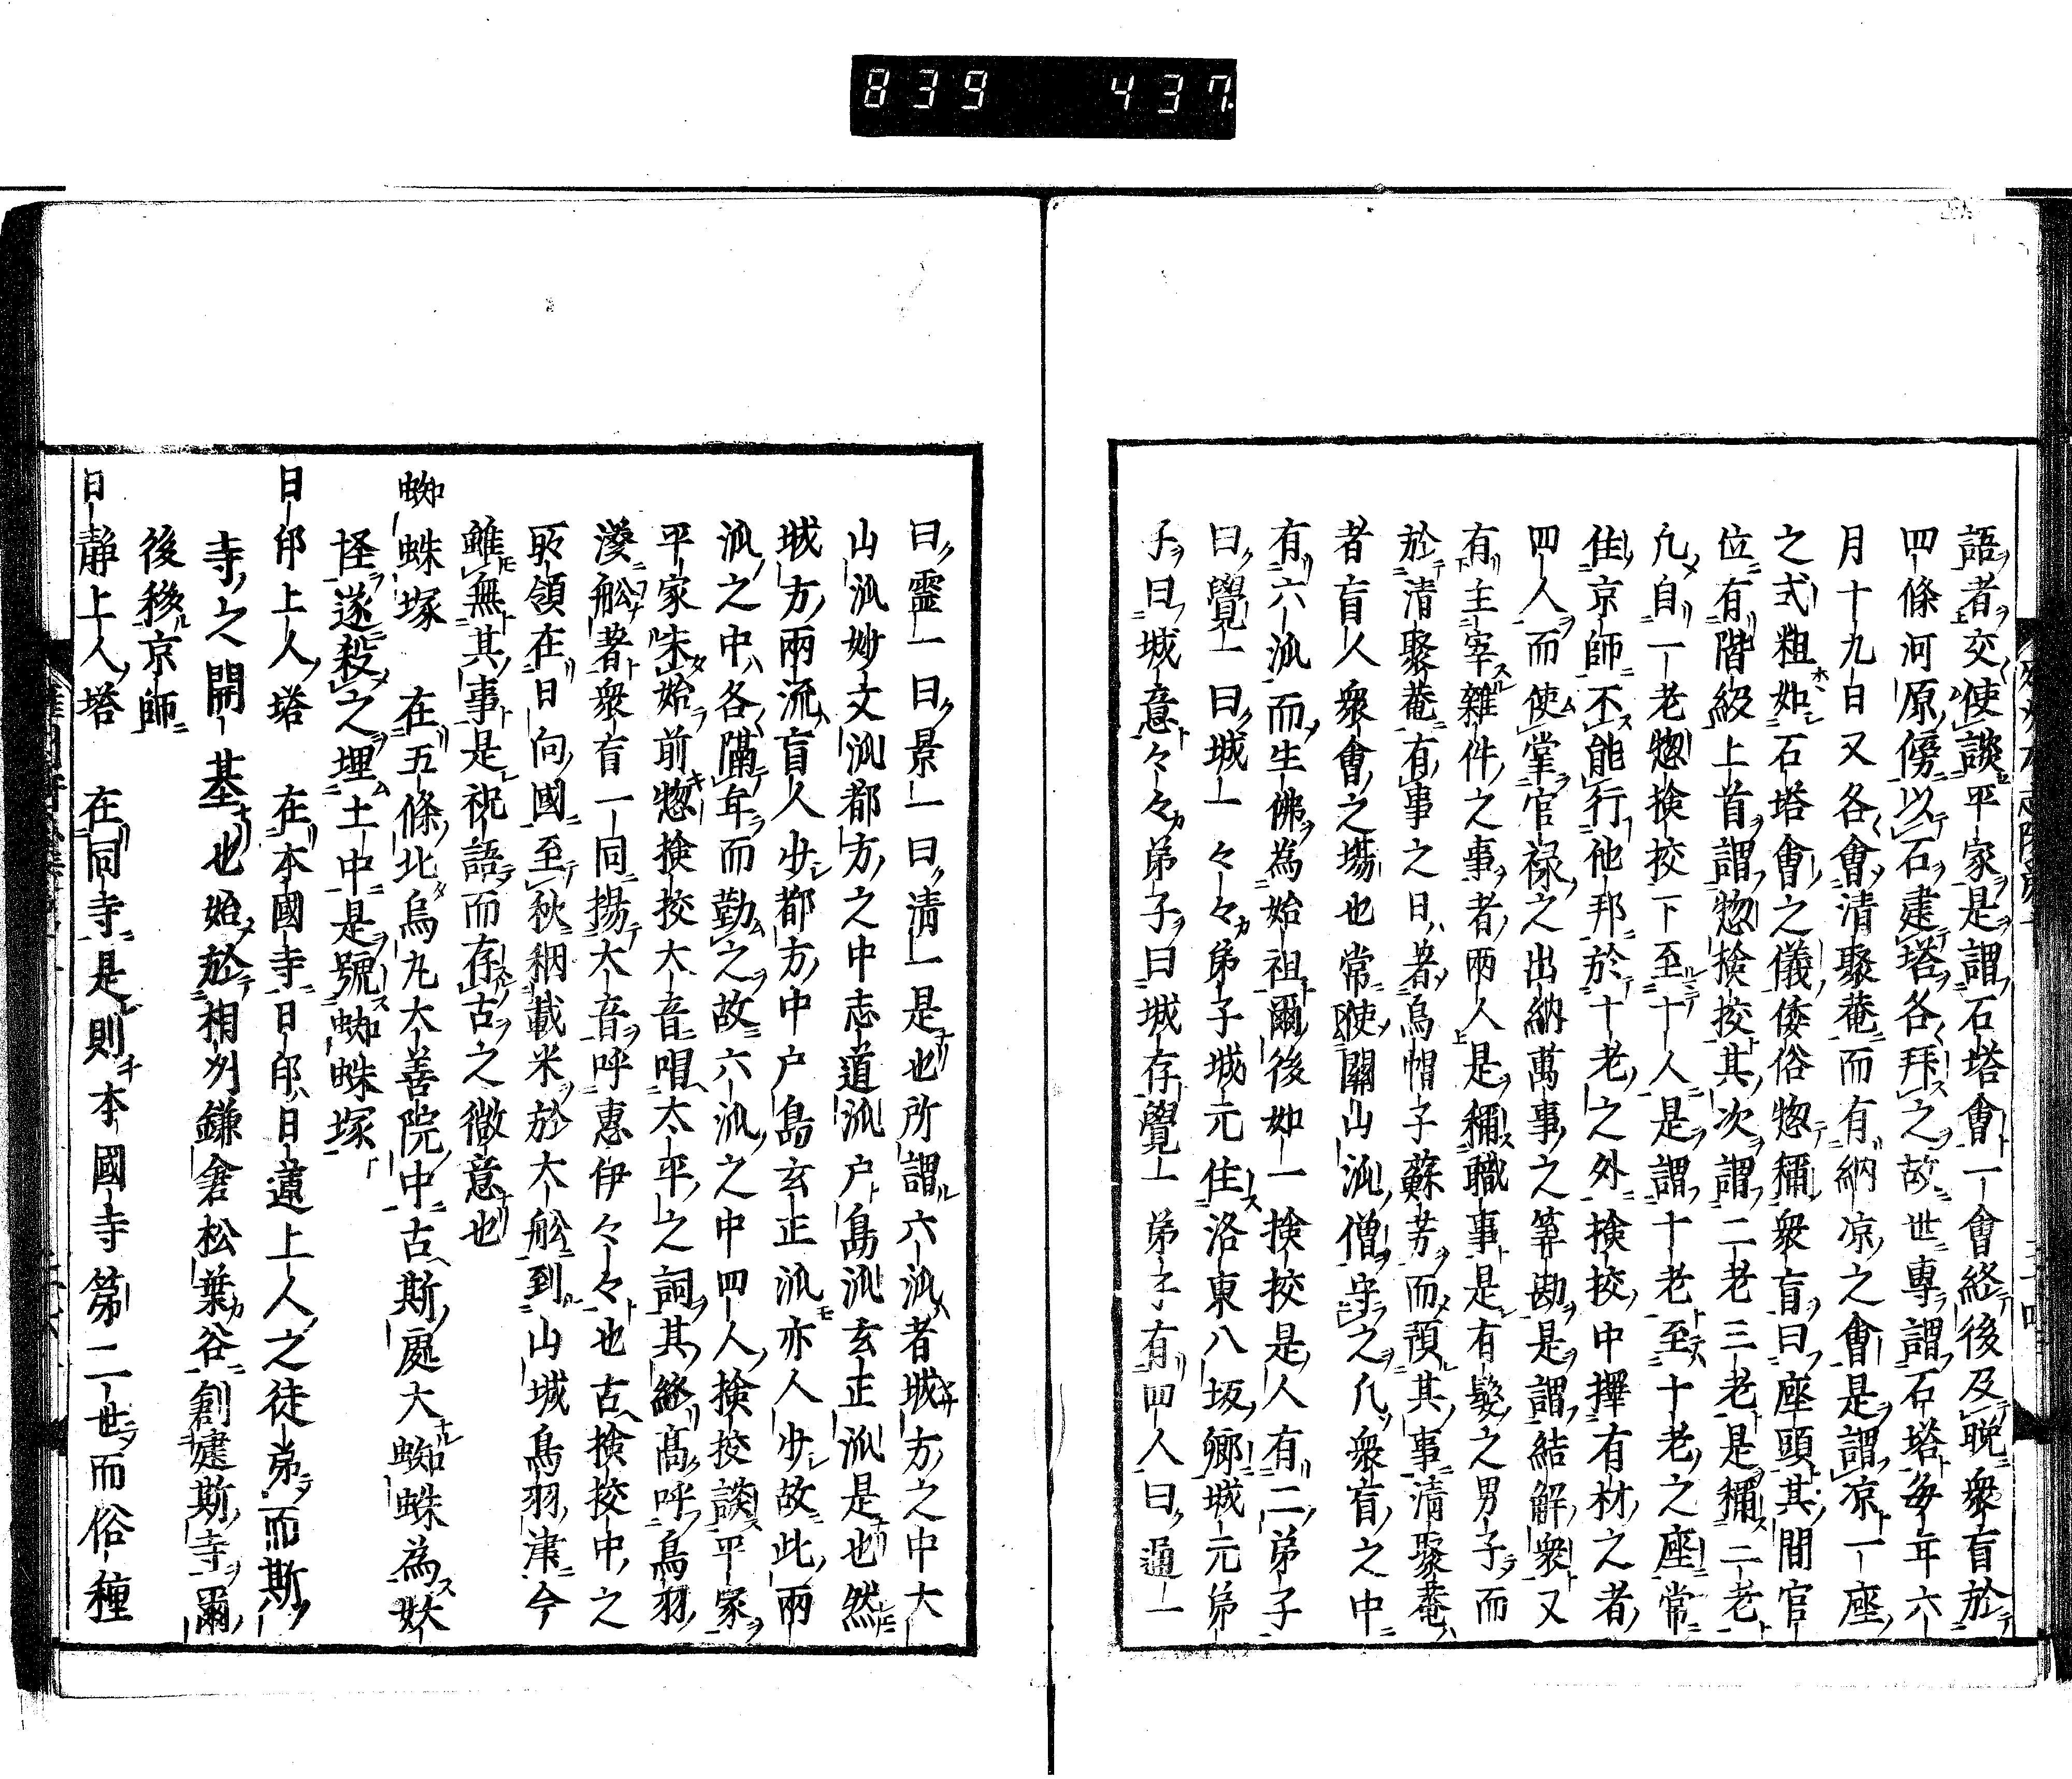 839 437
語者交使談平家是謂石塔會一會終後及晩衆盲於
四條河原傍以石建塔各拜之故世專謂石塔每年六
月十九日又各會清聚菴而有納凉之會是謂凉一座
之式粗如石塔會之儀倭俗惣稱衆盲曰座頭其間官
位有階級上首謂惣撿挍其次謂二老三老是稱二老
凢自一老惣撿挍下至十人是謂十老至十老之座常
住京師不能行他邦於十老之外撿挍中擇有材之者
四人而使掌官禄之出納萬事之筭勘是謂結解衆又
有主宰雜件之事者兩人是稱職事是有髮之男子而
於清聚菴有事之日著烏帽子蘇芳而預其事清聚菴
者盲人衆會之場也常使關山派僧守之凢衆盲之中
有六派而生佛為始祖爾後如一撿挍是人有二弟子
曰覺一曰城一々々弟子城元住洛東八坂鄉城元弟
子曰城意々々弟子曰城存覺一弟子有四人曰通一
曰靈一曰景一曰清一是也所謂六派者城方之中大
山派妙文派都方之中志道派户島派玄正派是也然
城方兩流盲人少都方中户島玄正派亦人少故此兩
派之中各隔年而勤之故六派之中四人撿挍談平家
平家未始前惣撿挍大音唱太平之詞其終高呼鳥羽
湊舩著衆盲一同揚大音呼惠伊々々也古撿挍中之
所領在日向國至秋稇載米於大舩到山城鳥羽津今
雖無其事是祝語而存古之微意也
蜘蛛塚 在五條北烏丸大善院中古斯處大蜘蛛為妖
怪遂殺之埋土中是號蜘蛛塚
日印上人塔 在本國寺日印日蓮上人之徒弟而斯
寺之開基也始於相州鎌倉松葉谷創建斯寺爾
後移京師
日靜上人塔 在同寺是則本國寺第二世而俗種